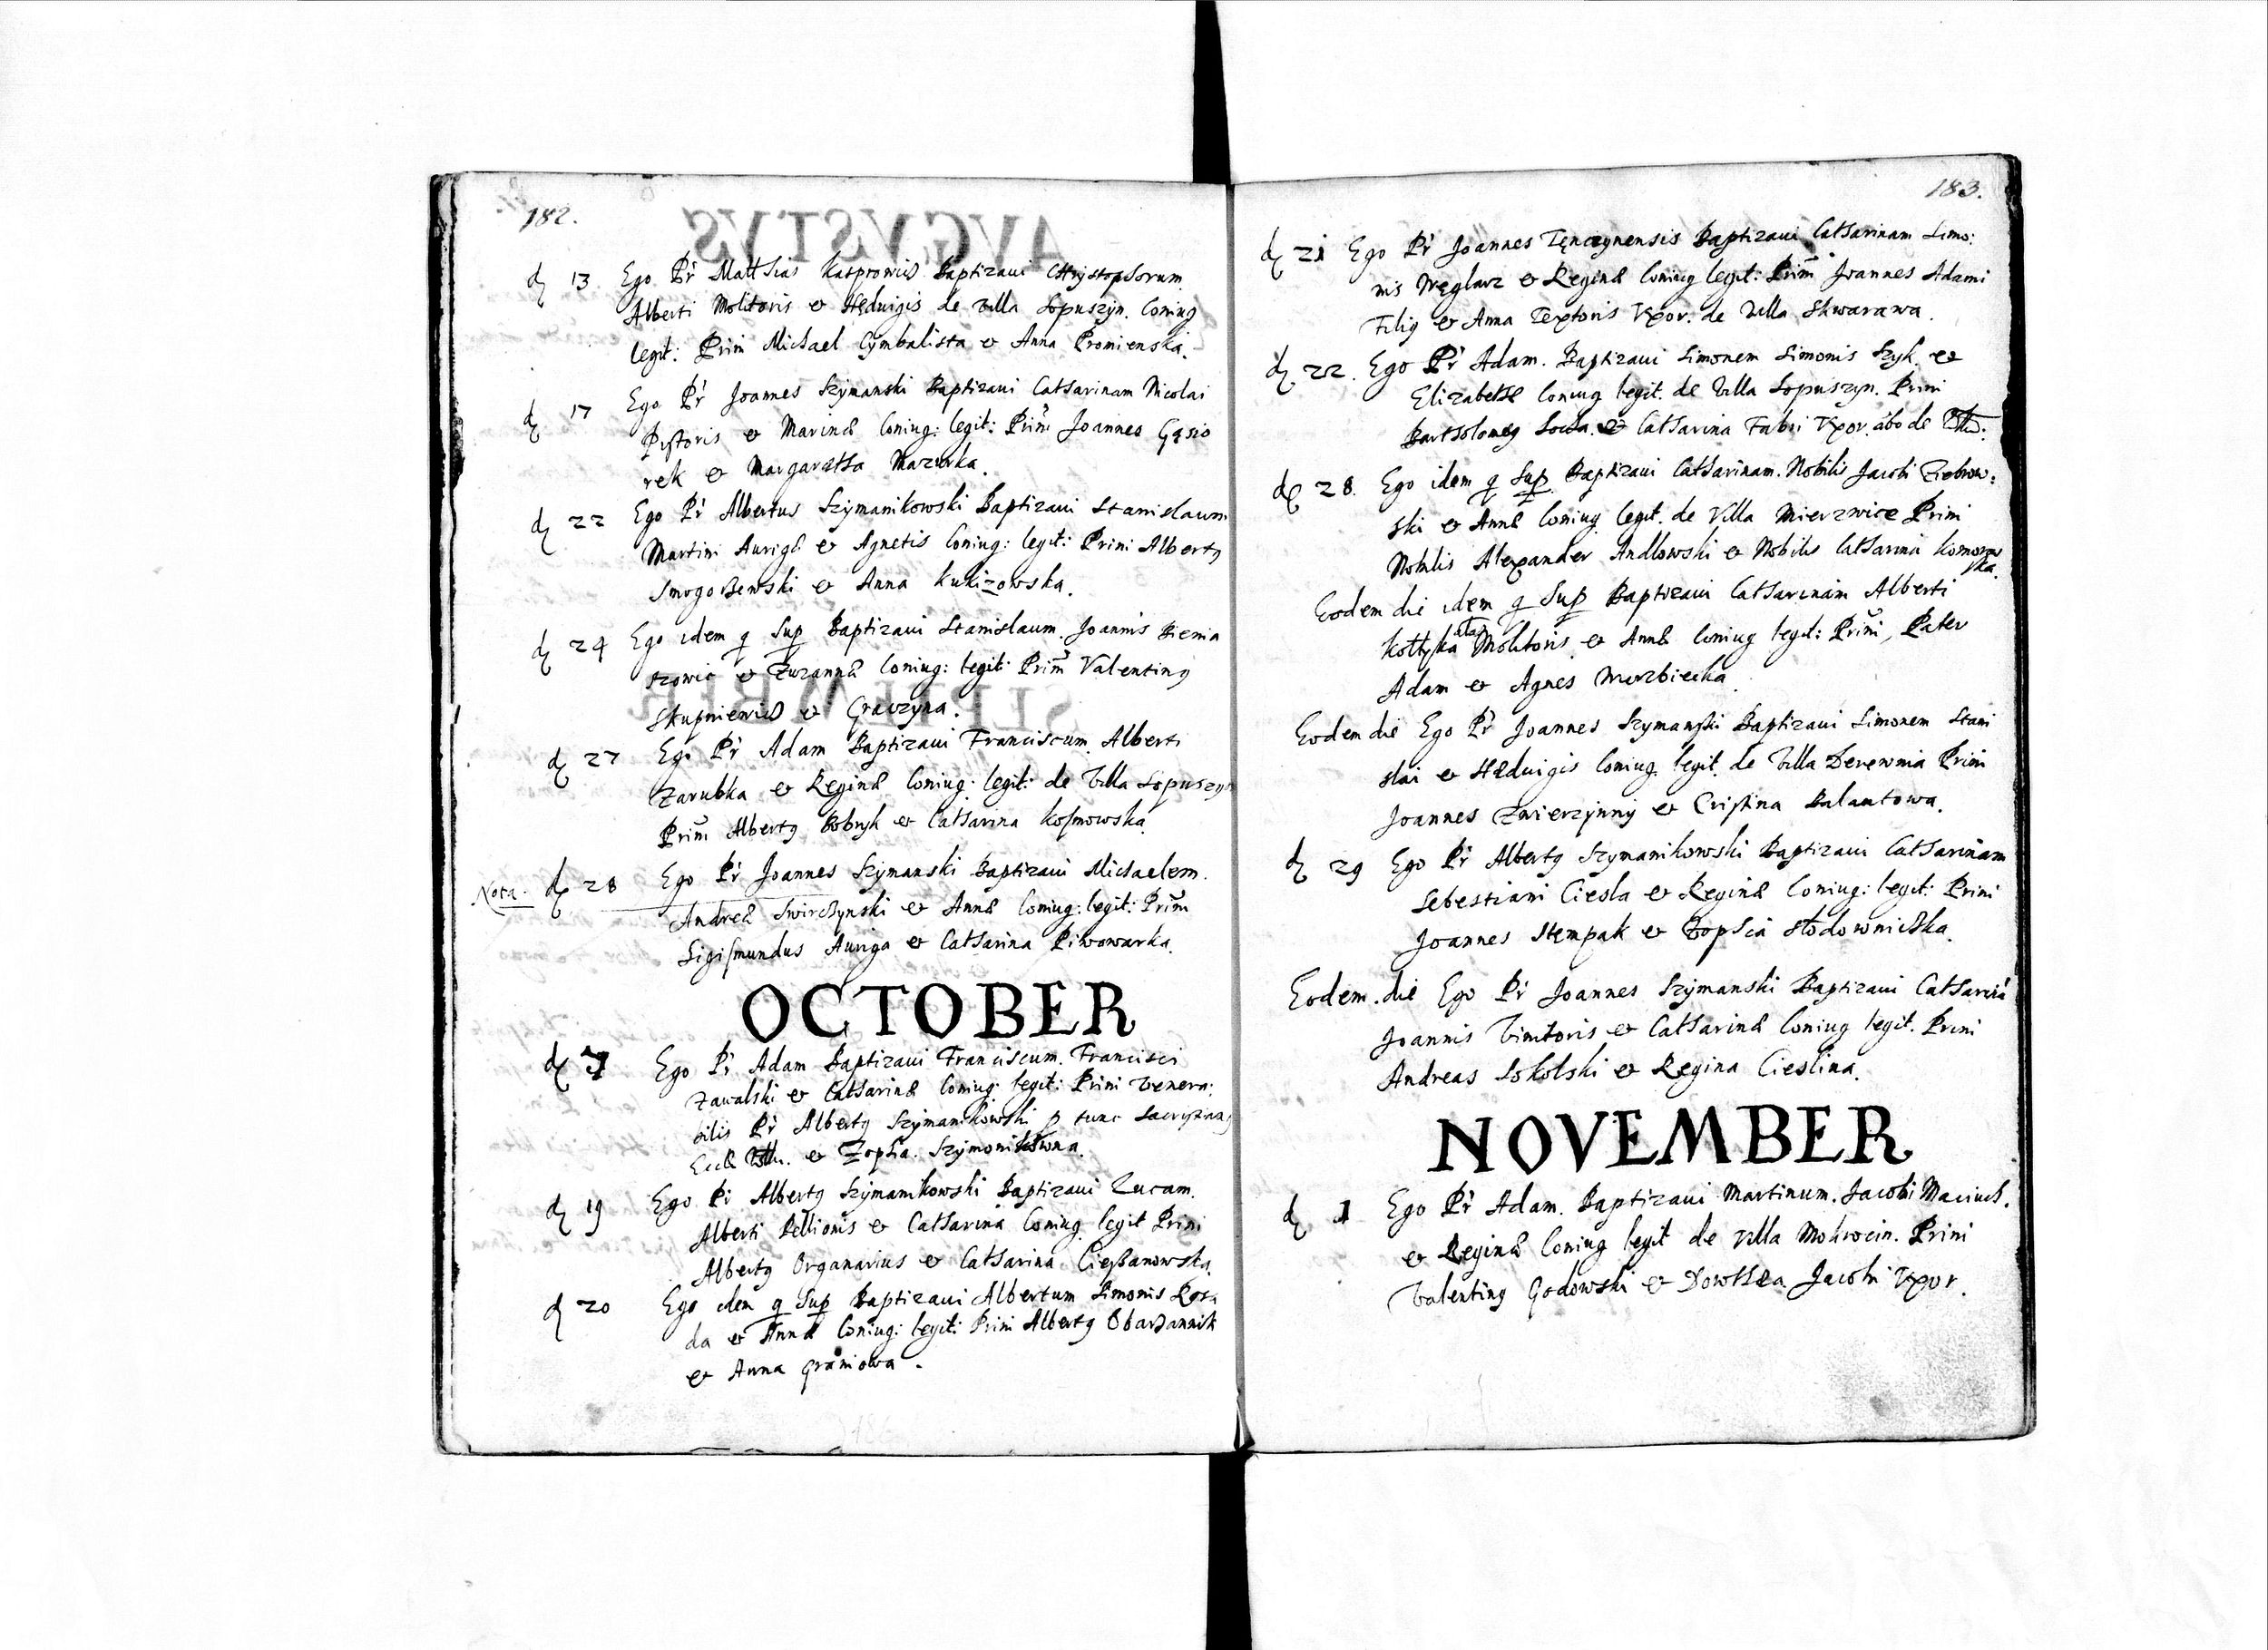 182.
d 13 Ego Pr Matthias Kasprowicz Baptizaui Christophorum
Alberti Molitoris et Hedvigis de villa Lopuszyn. Coniug
legit: Prini Michael Cymbalista et Anna Promienska.
d 17 Ego Pr Joannes Szymanski Baptizaui Catharinam Nicolai
Pistoris et Marinæ Coniug: legit: Prini Joannes Gąsio
rek et Margaretha Mazurka.
d 22 Ego Pr Albertus Szymanikowski Baptizaui Stanislaum
Martini Aurigæ et Agnetis Coniug: legit: Prini Albertg
Smogorzewski et Anna Kukizowska.
d 24 Ego idem q Sup Baptizaui Stanislaum Joannis Bienia
szowic et Zuzannæ Coniug: legit: Prini Valenting
Skupniewicz et Graczyna.
d 27 Ego Pr Adam Baptizaui Franciscum Alberti
Zarubka et Reginæ Coniug: legit: de Villa Lopuszyn
Prini Albertg Bobryk et Catharina Kosmowska
Nota. d 28 Ego Pr Joannes Szymanski Baptizaui Michaelem.
Andreæ Swirczynski et Annæ Coniug: legit: Prini
Sigismundus Auriga et Catharina Piwowarka.
OCTOBER
d 7 Ego Pr Adam Baptizaui Franciscum. Francisci
Zawalski et Catharinæ Coniug: legit: Prini Venera:
bilis Pr Albertg Szymanikowski p tunc Sacristang
Eccl. et Zopha. Szymonikowna.
d 19 Ego Pr Albertg Szymanikowski Baptizaui Lucam.
Alberti Pellionis et Catharina Coniug legit Prini
Albertg Organarius et Catharina Cieszanowska.
d 20 Ego idem q Sup Baptizaui Albertum Simonis
da et Annæ Coniug: legit: Prini Albertg Obarzannik
et Anna Graniowa.
183.
d 21 Ego Pr Joannes Tęnczynensis Baptizaui Catharinam Simo:
nis Węglarz et Reginæ Coniug legit: Prini Joannes Adami
Filig et Anna Textoris Vxor. de Villa Skwarawa.
d 22. Ego Pr Adam. Baptizaui Simonem Simonis Szyk et
Elizabethæ Coniug legit. de Villa Lopuszyn. Prini
Bartholomeg et Catharina Fabri Vxor. abo de
d 28. Ego idem q Sup. Baptizaui Catharinam. Nobilis Jacobi Ziebrow:
ski et Annæ Coniug legit. de Villa Mierzwice Prini
Nobilis Alexander Andlowski et Nobilis Catharina Komorow
ska.
Eodem die idem q Sup Baptizaui Catharinam Alberti
Koltyka alias Molitoris et Annæ Coniug legit: Prini, Pater
Adam et Agnes Murzbiecka.
Eodem die Ego Pr Joannes Szymanski Baptizaui Simonem Stani
slai et Hedvigis Coniug legit. de Villa Derewnia Prini
Joannes Zwierzynny et Cristina Balantowa.
d 29 Ego Pr Albertg Szymanikowski Baptizaui Catharinam
Sebestiani Ciesla et Reginæ Coniug: legit: Prini
Joannes Stempak et Zophia Slodowniczka.
Eodem die Ego Pr Joannes Szymanski Baptizaui Catharinā
Joannis Vinitoris et Catharinæ Coniug legit. Prini
Andreas Sokolski et Regina Cieslina.
NOVEMBER
d 1 Ego Pr Adam. Baptizaui Martinum. Jacobi Maciusz.
et Reginæ Coniug legit de villa Mokrocin. Prini
Valenting Godowski et Dorothea Jacobi Vxor.